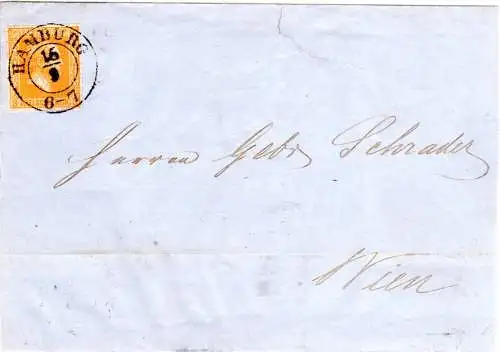 HAMBURG
16
9
6-7
Herren Gebr Schrader
Wien